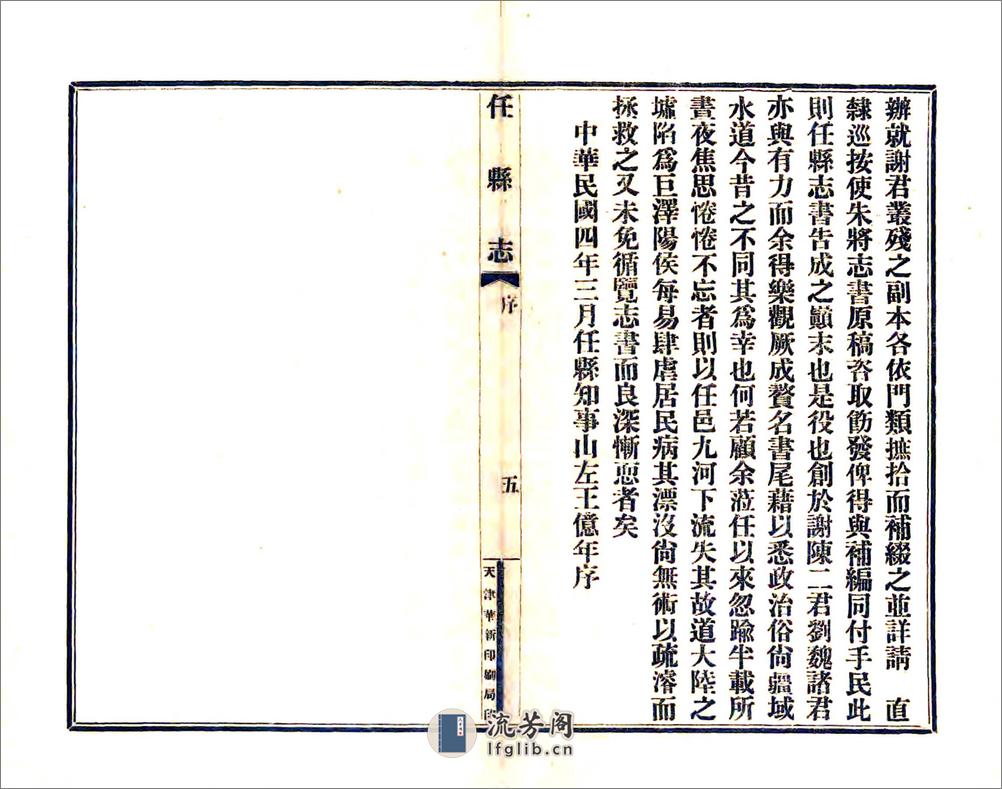 辦就謝君叢殘之副本各依門類摭拾而補綴之並詳請　直
隸巡按使朱將志書原稿咨取飭發俾得與補編同付手民此
則任縣志書告成之顚末也是役也創於謝陳二君劉魏諸君
亦與有力而余得樂觀厥成贅名書尾藉以悉政治俗尙疆域
水道今昔之不同其爲幸也何若顧余蒞任以來忽踰半載所
晝夜焦思惓惓不忘者則以任邑九河下流失其故道大陸之
墟陷爲巨澤陽侯每易肆虐居民病其漂沒尙無術以疏濬而
拯救之又未免循覽志書而良深慚恧者矣
中華民國四年三月任縣知事山左王億年序
任縣志
序
五
天津華新印刷局印
流芳阁
lfglib.cn